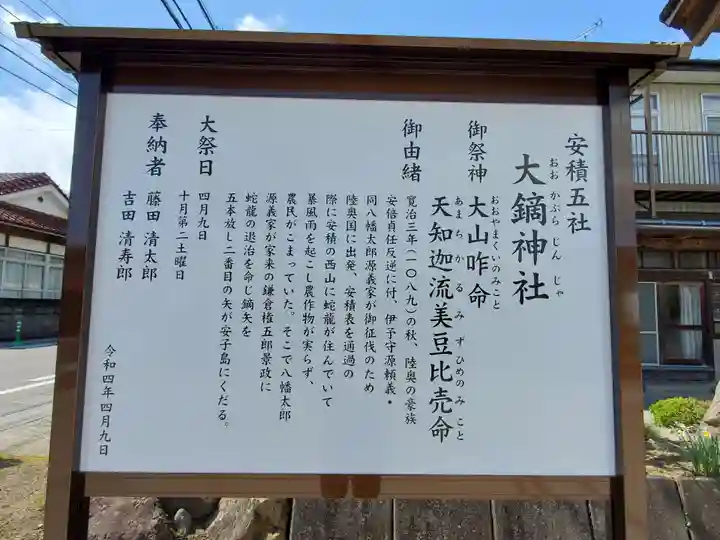 安積五社
大鏑神社
おお かぶら じん じゃ
御祭神
大山咋命
おおやまくいのみこと
天知迦流美豆比売命
あまちかるみずひめのみこと
御由緒
寛治三年(一〇八九)の秋、陸奥の豪族
安倍貞任反逆に付、伊予守源頼義・
同八幡太郎源義家が御征伐のため
陸奥国に出発、安積表を通過の
際に安積の西山に蛇龍が住んでいて
暴風雨を起こし農作物が実らず、
農民がこまっていた。そこで八幡太郎
源義家が家来の鎌倉権五郎景政に
蛇龍の退治を命じ鏑矢を
五本放し二番目の矢が安子島にくだる。
大祭日
四月九日
十月第二土曜日
奉納者
藤田 清太郎
吉田 清寿郎
令和四年四月九日